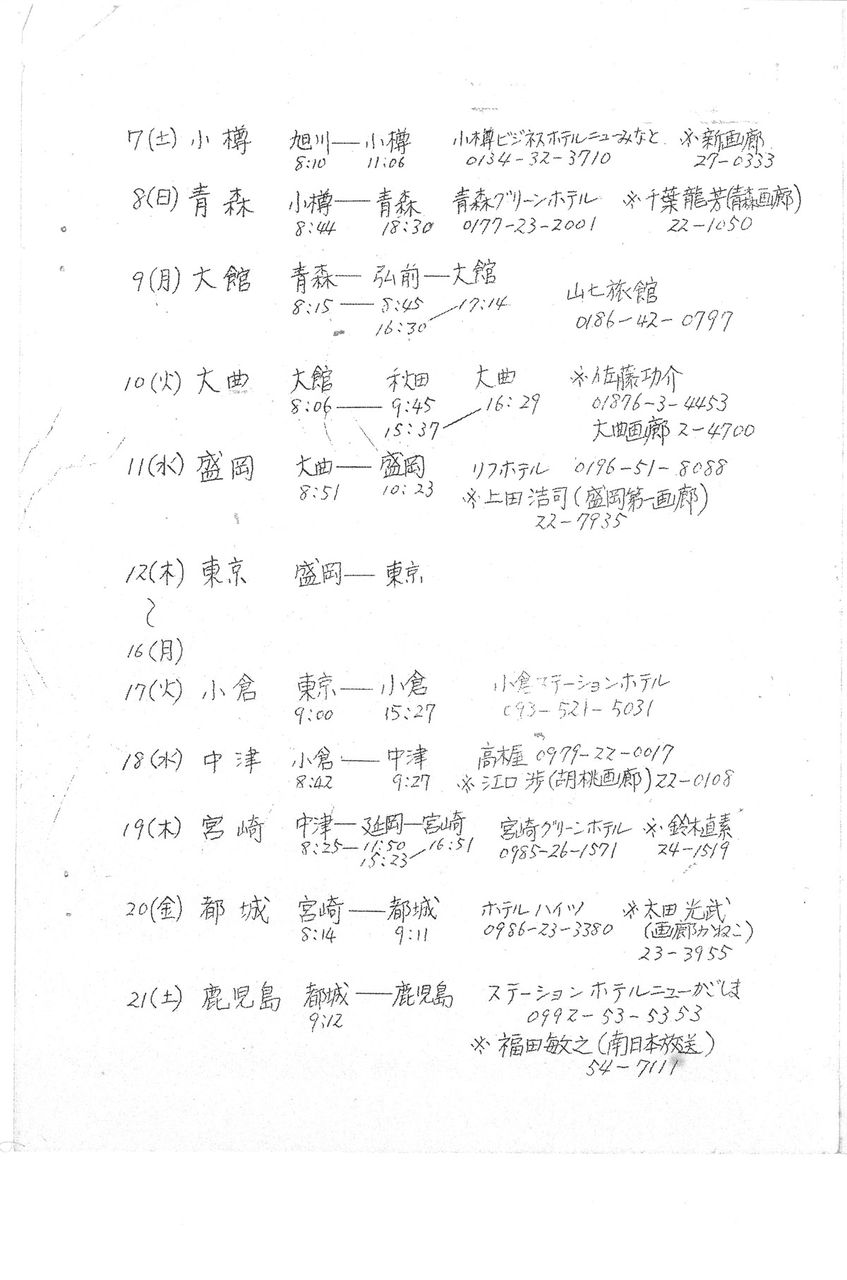 7(土) 小樽 旭川―小樽 小樽ビジネスホテルニューみなと ※新画廊
8:10 11:06 0134-32-3710 27-0333
8(日) 青森 小樽―青森 青森グリーンホテル ※千葉龍芳(青森画廊)
8:44 18:30 0177-23-2001 22-1050
9(月) 大館 青森―弘前―大館
8:15―8:45 17:14 山七旅館
16:30 0186-42-0797
10(火) 大曲 大館 秋田 大曲 ※佐藤功介
8:06―9:45 16:29 01876-3-4453
15:37 大曲画廊 2-4700
11(水) 盛岡 大曲―盛岡 リフホテル 0196-51-8088
8:51 10:23 ※上田浩司(盛岡第一画廊)
22-7935
12(木) 東京 盛岡―東京
〜
16(月)
17(火) 小倉 東京―小倉 小倉ステーションホテル
9:00 15:27 093-521-5031
18(水) 中津 小倉―中津 高木屋 0979-22-0017
8:42 9:27 ※江口 渉(胡桃画廊)22-0108
19(木) 宮崎 中津―延岡―宮崎 宮崎グリーンホテル ※鈴木直素
8:25―11:50 16:51 0985-26-1571 24-1519
15:23
20(金) 都城 宮崎―都城 ホテルハイツ ※太田光武
8:14 9:11 0986-23-3380 (画廊かねこ)
23-3955
21(土) 鹿児島 都城―鹿児島 ステーションホテルニューかごしま
9:12 0992-53-5353
※福田敏之(南日本放送)
54-7111